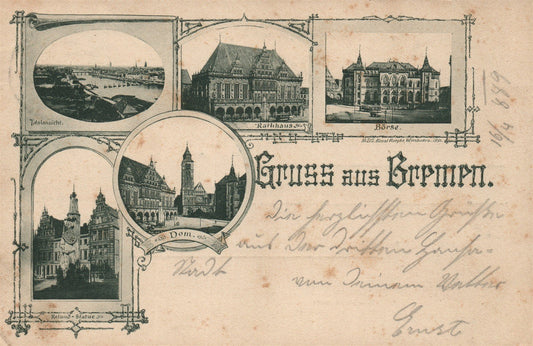 Totalansicht.
Rathhaus.
Börse.
Dom.
Roland-Statue
Gruss aus Bremen.
16/4 899
Die herzlichsten Grüße
aus der dritten Hansa-
Stadt
von Deinem Walter
Ernst